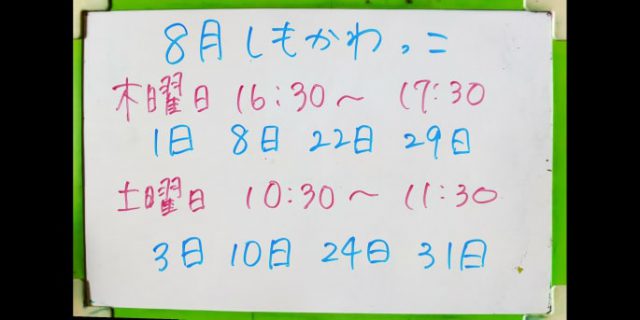 8月 しもかわっこ
木曜日 16:30〜 17:30
1日 8日 22日 29日
土曜日 10:30〜 11:30
3日 10日 24日 31日